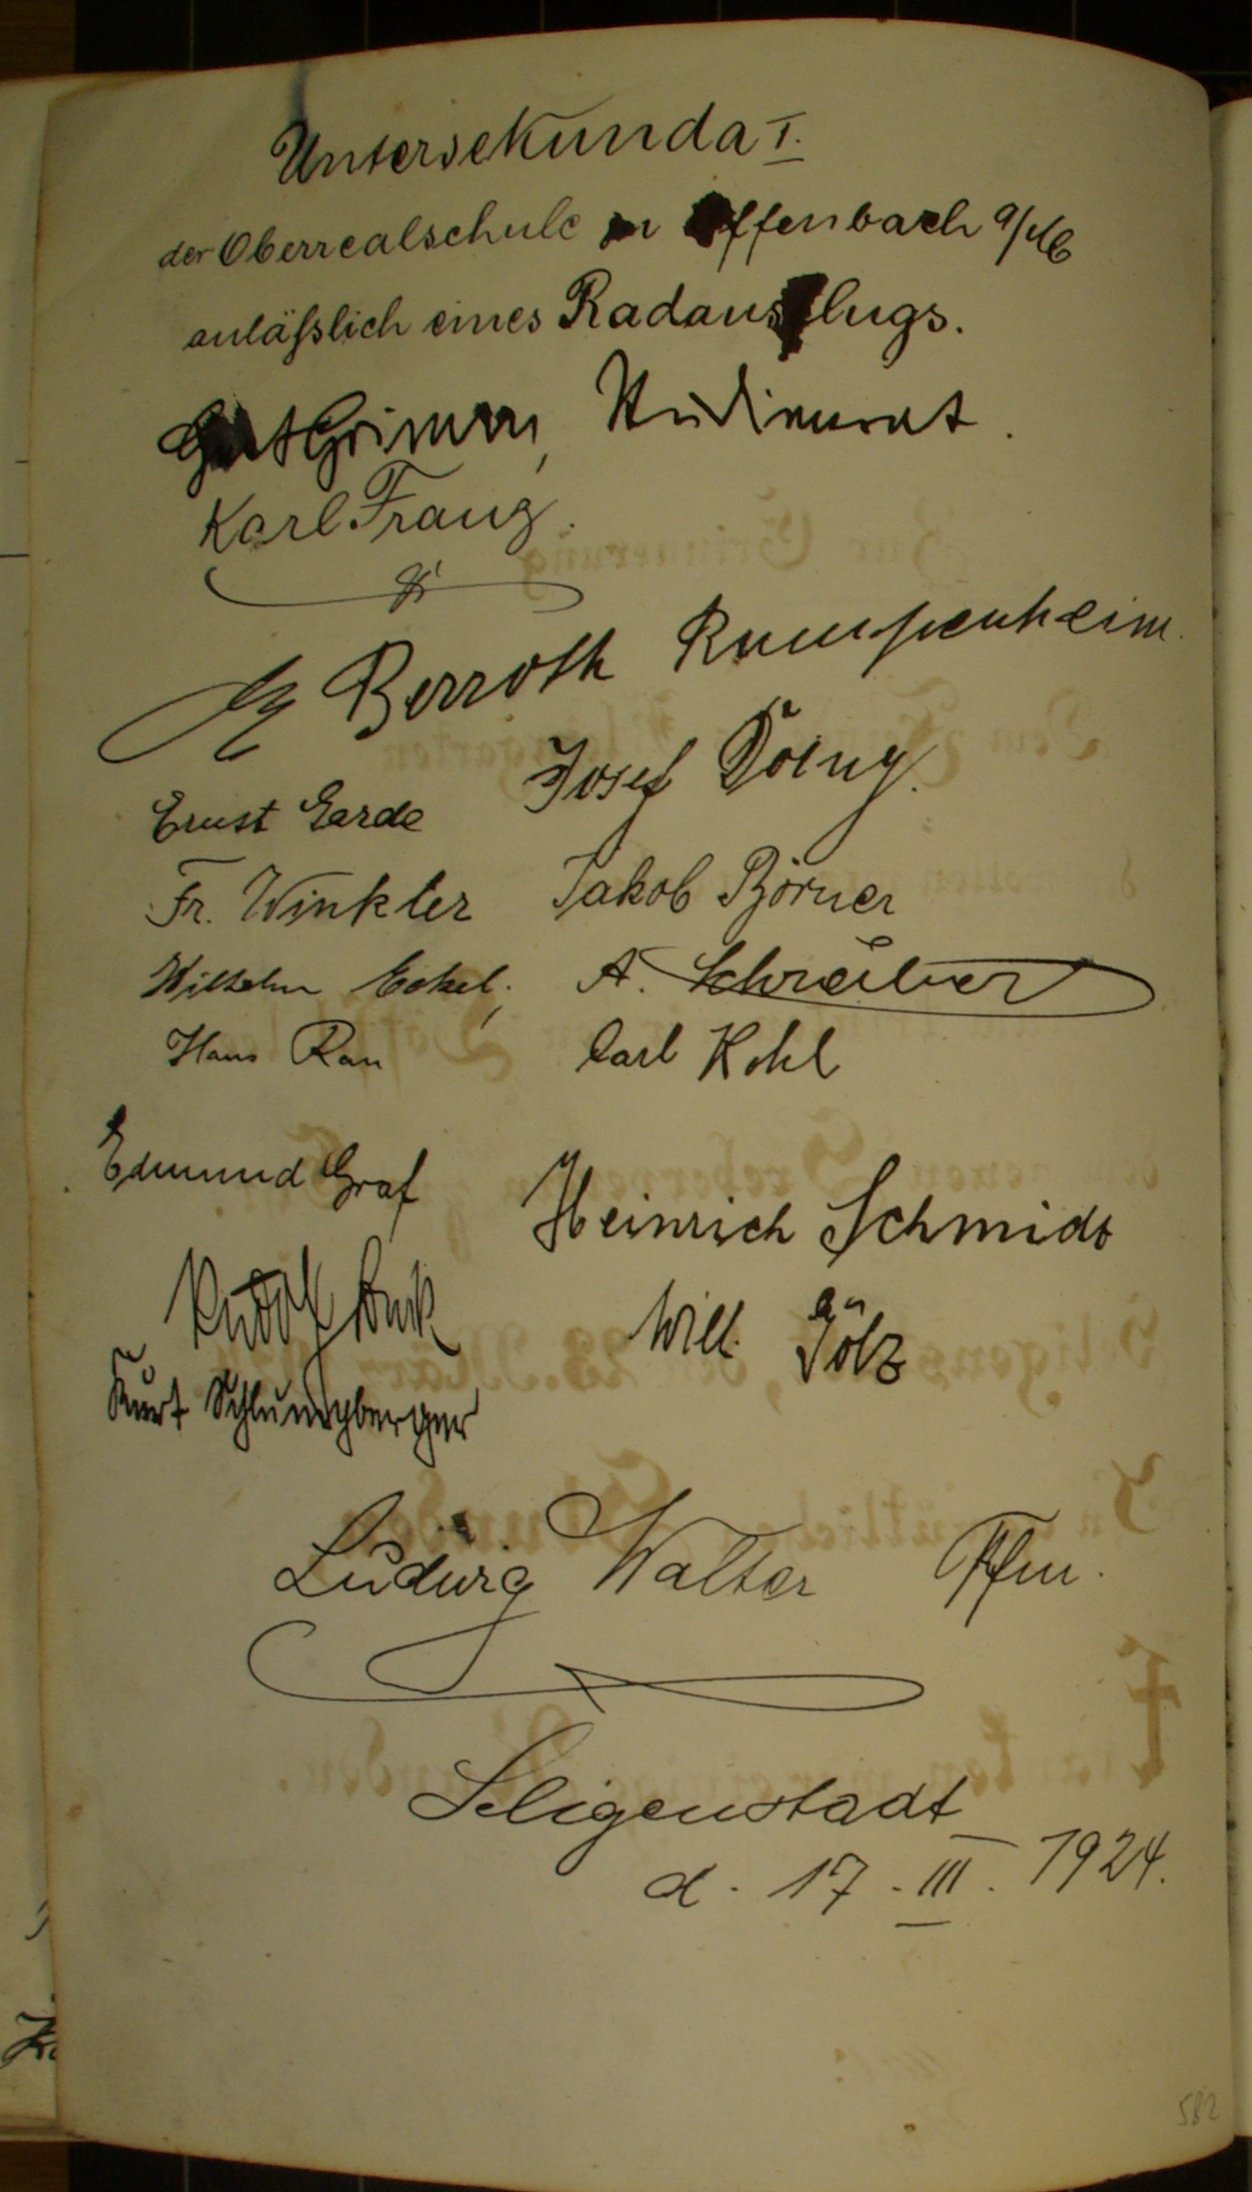 Untersekunda I.
der Oberrealschule in Offenbach a/M
anläßlich eines Radausflugs.
Grimm, Studienrat.
Karl Franz.
Berroth Rumpenheim.
Josef Döing.
Ernst Garde
Fr. Winkler Jakob Börner
Wilhelm Eckel, A. Schreiber
Hans Rau Carl Kohl
Edmund Graf
Heinrich Schmidt
Rudolf
Will. Gölz
Kurt Schlumpberger
Ludwig Walter
Seligenstadt
d. 17. III. 1924.
582